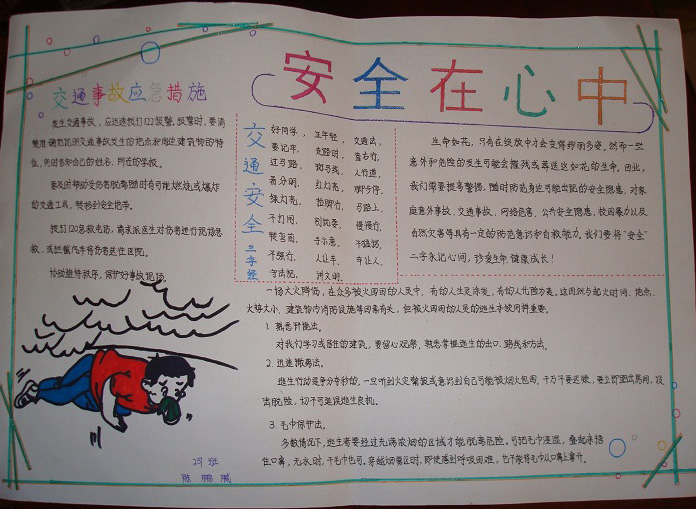 安全在心中
交通事故应急措施
发生交通事故，应迅速拨打122报警。报警时，要清
楚准确地说出交通事故发生的地点和周边建筑物的特
征，同时告知自己的姓名、所在的学校。
要及时帮助受伤者脱离随时有可能燃烧或爆炸
的交通工具，转移到安全地带。
拨打120急救电话，请求派医生对伤者进行现场急
救，或拦截汽车将伤者送往医院。
协助维持秩序，保护好事故现场。
交通安全三字经
好同学， 正年轻， 交通法，
要记牢， 走路时， 靠右行，
过马路， 斑马线， 人行道，
看分明， 红灯亮，
绿灯亮， 马路上，
不打闹， 慢慢行，
转弯角，
人让车， 车让人，
讲文明。
生命如花，只有在绽放中才会变得绚丽多姿。然而一些
意外和危险的发生可能会摧残或葬送这如花的生命。因此，
我们需要提高警惕，随时防范身边可能出现的安全隐患，对家
庭意外事故、交通事故、网络危害、公共安全隐患、校园暴力以及
自然灾害等具有一定的防范意识和自救能力。我们要将“安全”
二字永记心间，珍爱生命，健康成长！
一场大火降临，在众多被火围困的人员中，有的人生命涂炭，有的人化险为夷。这固然与起火时间、地点、
火势大小、建筑物内消防设施等因素有关，但被火围困的人员的逃生本领同样重要。
1. 熟悉环境法。
对我们学习或居住的建筑，要留心观察，熟悉掌握逃生的出口、路线和方法。
2. 迅速撤离法。
逃生行动是争分夺秒的。一旦听到火灾警报或意识到自己可能被烟火包围，千万不要迟疑，要立即跑出房间，设
法脱险，切不可延误逃生良机。
3. 毛巾保护法。
多数情况下，逃生者要经过充满浓烟的区域才能脱离危险，可把毛巾浸湿，叠起来捂
住口鼻，无水时，干毛巾也可。穿越烟雾区时，即使感到呼吸困难，也不能将毛巾从口鼻上拿开。